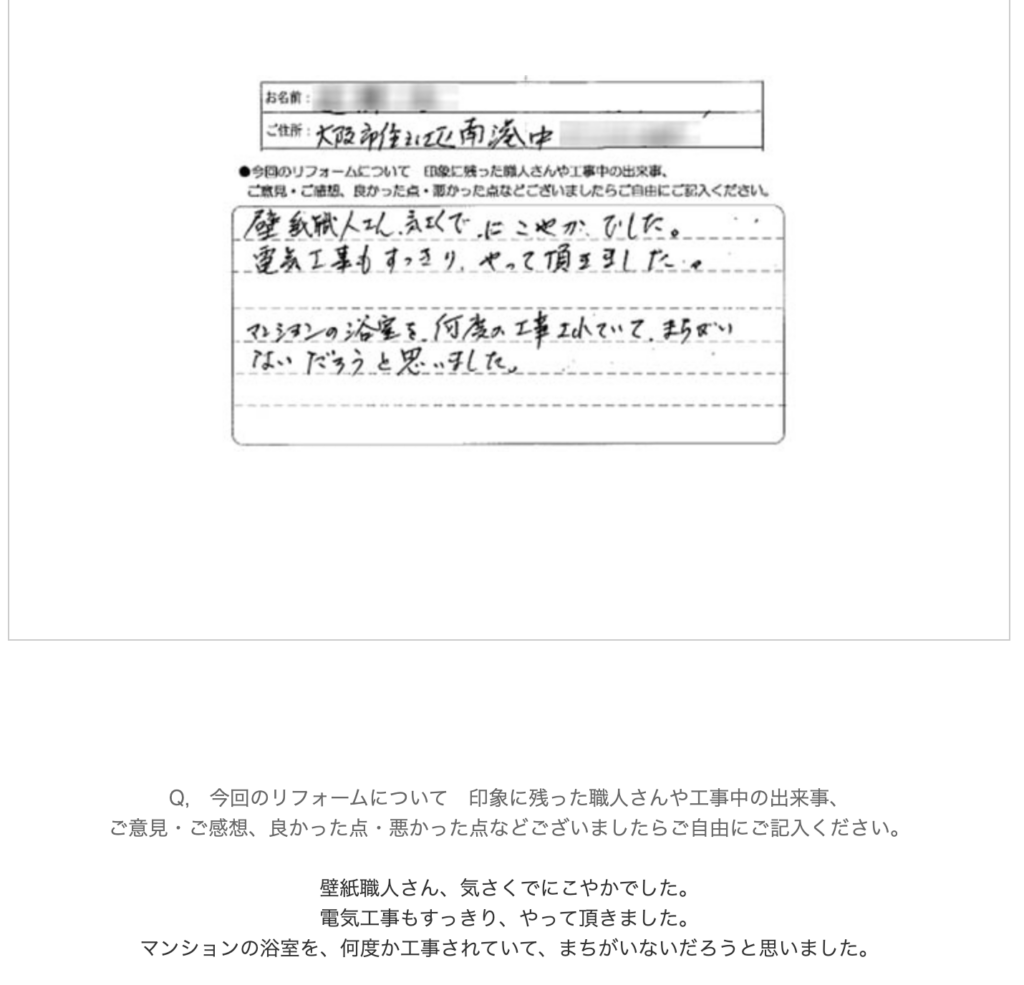 お名前：
ご住所：大阪市住之江区南港中
●今回のリフォームについて　印象に残った職人さんや工事中の出来事、
ご意見・ご感想、良かった点・悪かった点などございましたらご自由にご記入ください。
壁紙職人さん、気さくで、にこやかでした。
電気工事もすっきり、やって頂きました。
マンションの浴室を、何度か工事されていて、まちがい
ないだろうと思いました。
Q,　今回のリフォームについて　印象に残った職人さんや工事中の出来事、
ご意見・ご感想、良かった点・悪かった点などございましたらご自由にご記入ください。
壁紙職人さん、気さくでにこやかでした。
電気工事もすっきり、やって頂きました。
マンションの浴室を、何度か工事されていて、まちがいないだろうと思いました。